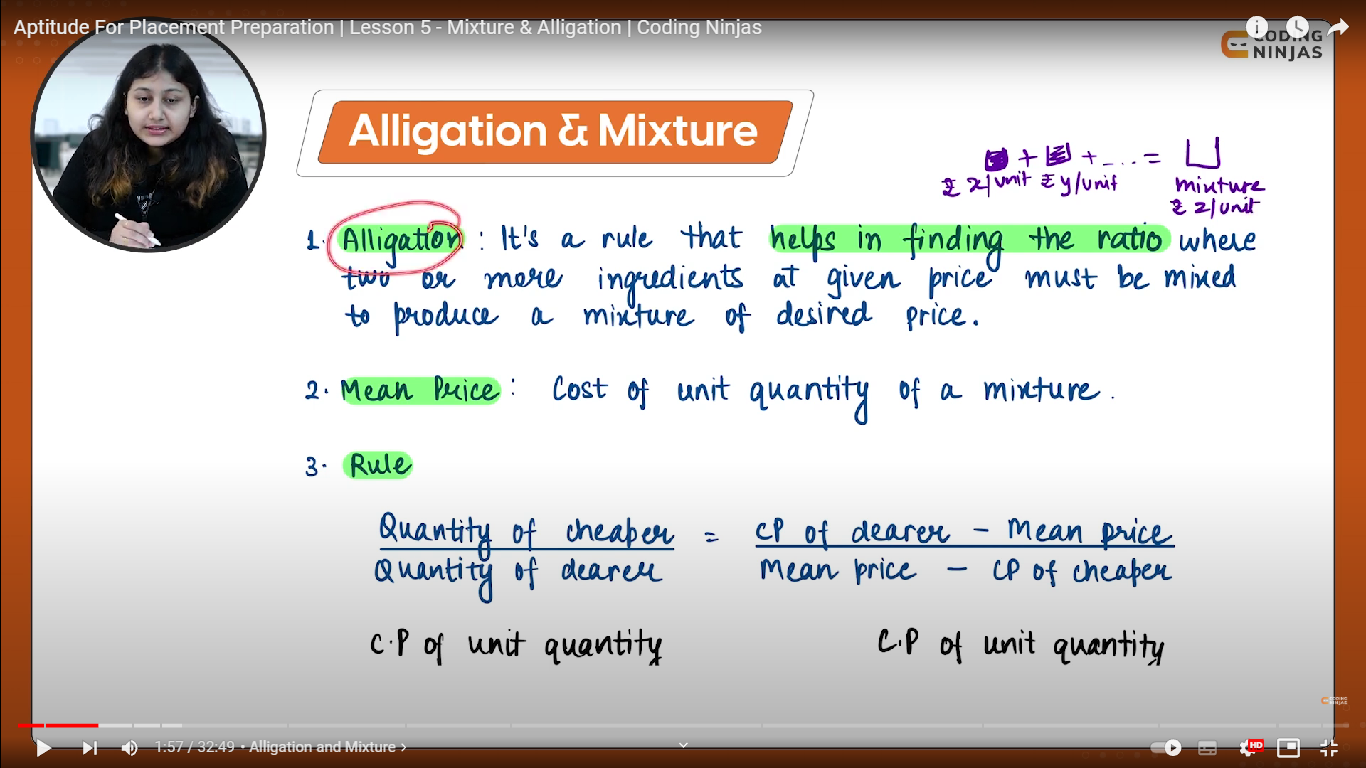 Aptitude For Placement Preparation | Lesson 5 - Mixture & Alligation | Coding Ninjas
CODING
NINJAS
Alligation & Mixture
+ + .... =
₹ x/unit ₹ y/unit mixture
₹ z/unit
1. Alligation : It's a rule that helps in finding the ratio where
two or more ingredients at given price must be mixed
to produce a mixture of desired price.
2. Mean Price : Cost of unit quantity of a mixture.
3. Rule
Quantity of cheaper = CP of dearer - Mean price
Quantity of dearer Mean price - CP of cheaper
C.P of unit quantity C.P of unit quantity
CODING
NINJAS
1:57 / 32:49 • Alligation and Mixture >
HD